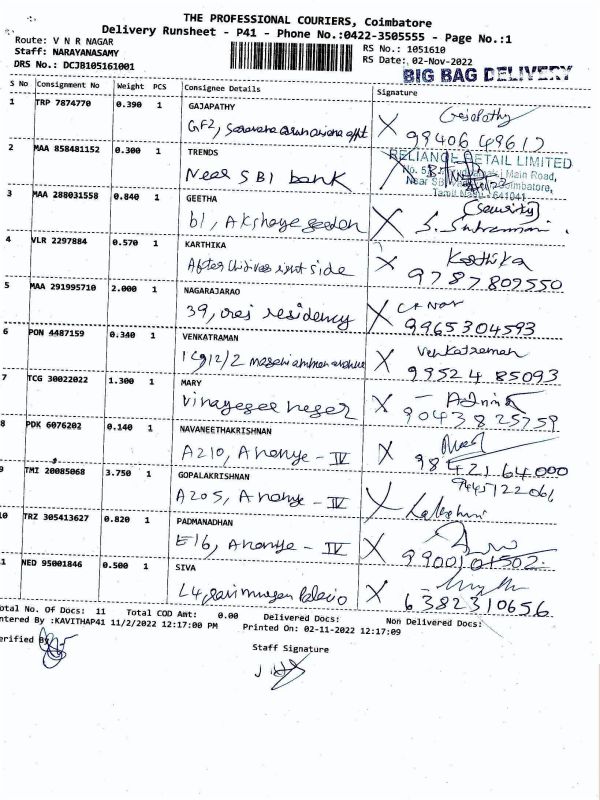 THE PROFESSIONAL COURIERS, Coimbatore
Delivery Runsheet - P41 - Phone No.:0422-3505555 - Page No.:1
Route: V N R NAGAR
RS No.: 1051610
Staff: NARAYANASAMY
RS Date: 02-Nov-2022
DRS No.: DCJB105161001
BIG BAG DELIVERY
S No Consignment No Weight PCS Consignee Details Signature
1 TRP 7874770 0.390 1 GAJAPATHY
GF2, Gajapathy
99406 49617
2 MAA 858481152 0.300 1 TRENDS
RELIANCE RETAIL LIMITED
Near SBI bank
Main Road,
Near SB Coimbatore,
Tamil Nadu 641041
3 MAA 288031558 0.840 1 GEETHA
(Security)
b1, Akshaye
4 VLR 2297884 0.570 1 KARTHIKA
Karthika
After side
9787809550
5 MAA 291995710 2.000 1 NAGARAJARAO
39, residency
9965304593
6 PON 4487159 0.340 1 VENKATRAMAN
Venkatraman
1C912/2
99524 85093
7 TCG 30022022 1.300 1 MARY
9043825759
8 PDK 6076202 0.140 1 NAVANEETHAKRISHNAN
A210, Ananye - IV
9842164000
9 TMI 20085068 3.750 1 GOPALAKRISHNAN
9445122061
A205, Ananye - IV
10 TRZ 305413627 0.820 1 PADMANADHAN
E16, Ananye - IV
9900101502
1 NED 95001846 0.500 1 SIVA
L4,
6382310656
otal No. Of Docs: 11 Total COD Amt: 0.00 Delivered Docs: Non Delivered Docs:
ntered By :KAVITHAP41 11/2/2022 12:17:00 PM Printed On: 02-11-2022 12:17:09
erified By
Staff Signature